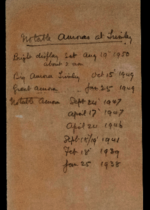 Notable Aurorae at
Bright display Sat Aug 19 1950
about 2 am
Big Aurora Oct 15 1949
Great aurora Jan 25 1949
Notable Aurora Sept 24 1947
April 17 1947
April 24 1946
Sept 18/19 1941
Feb 18 1939
Jan 25 1938